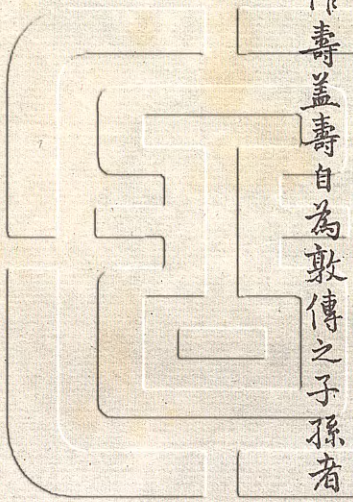 作壽蓋壽自為敦傳之子孫者